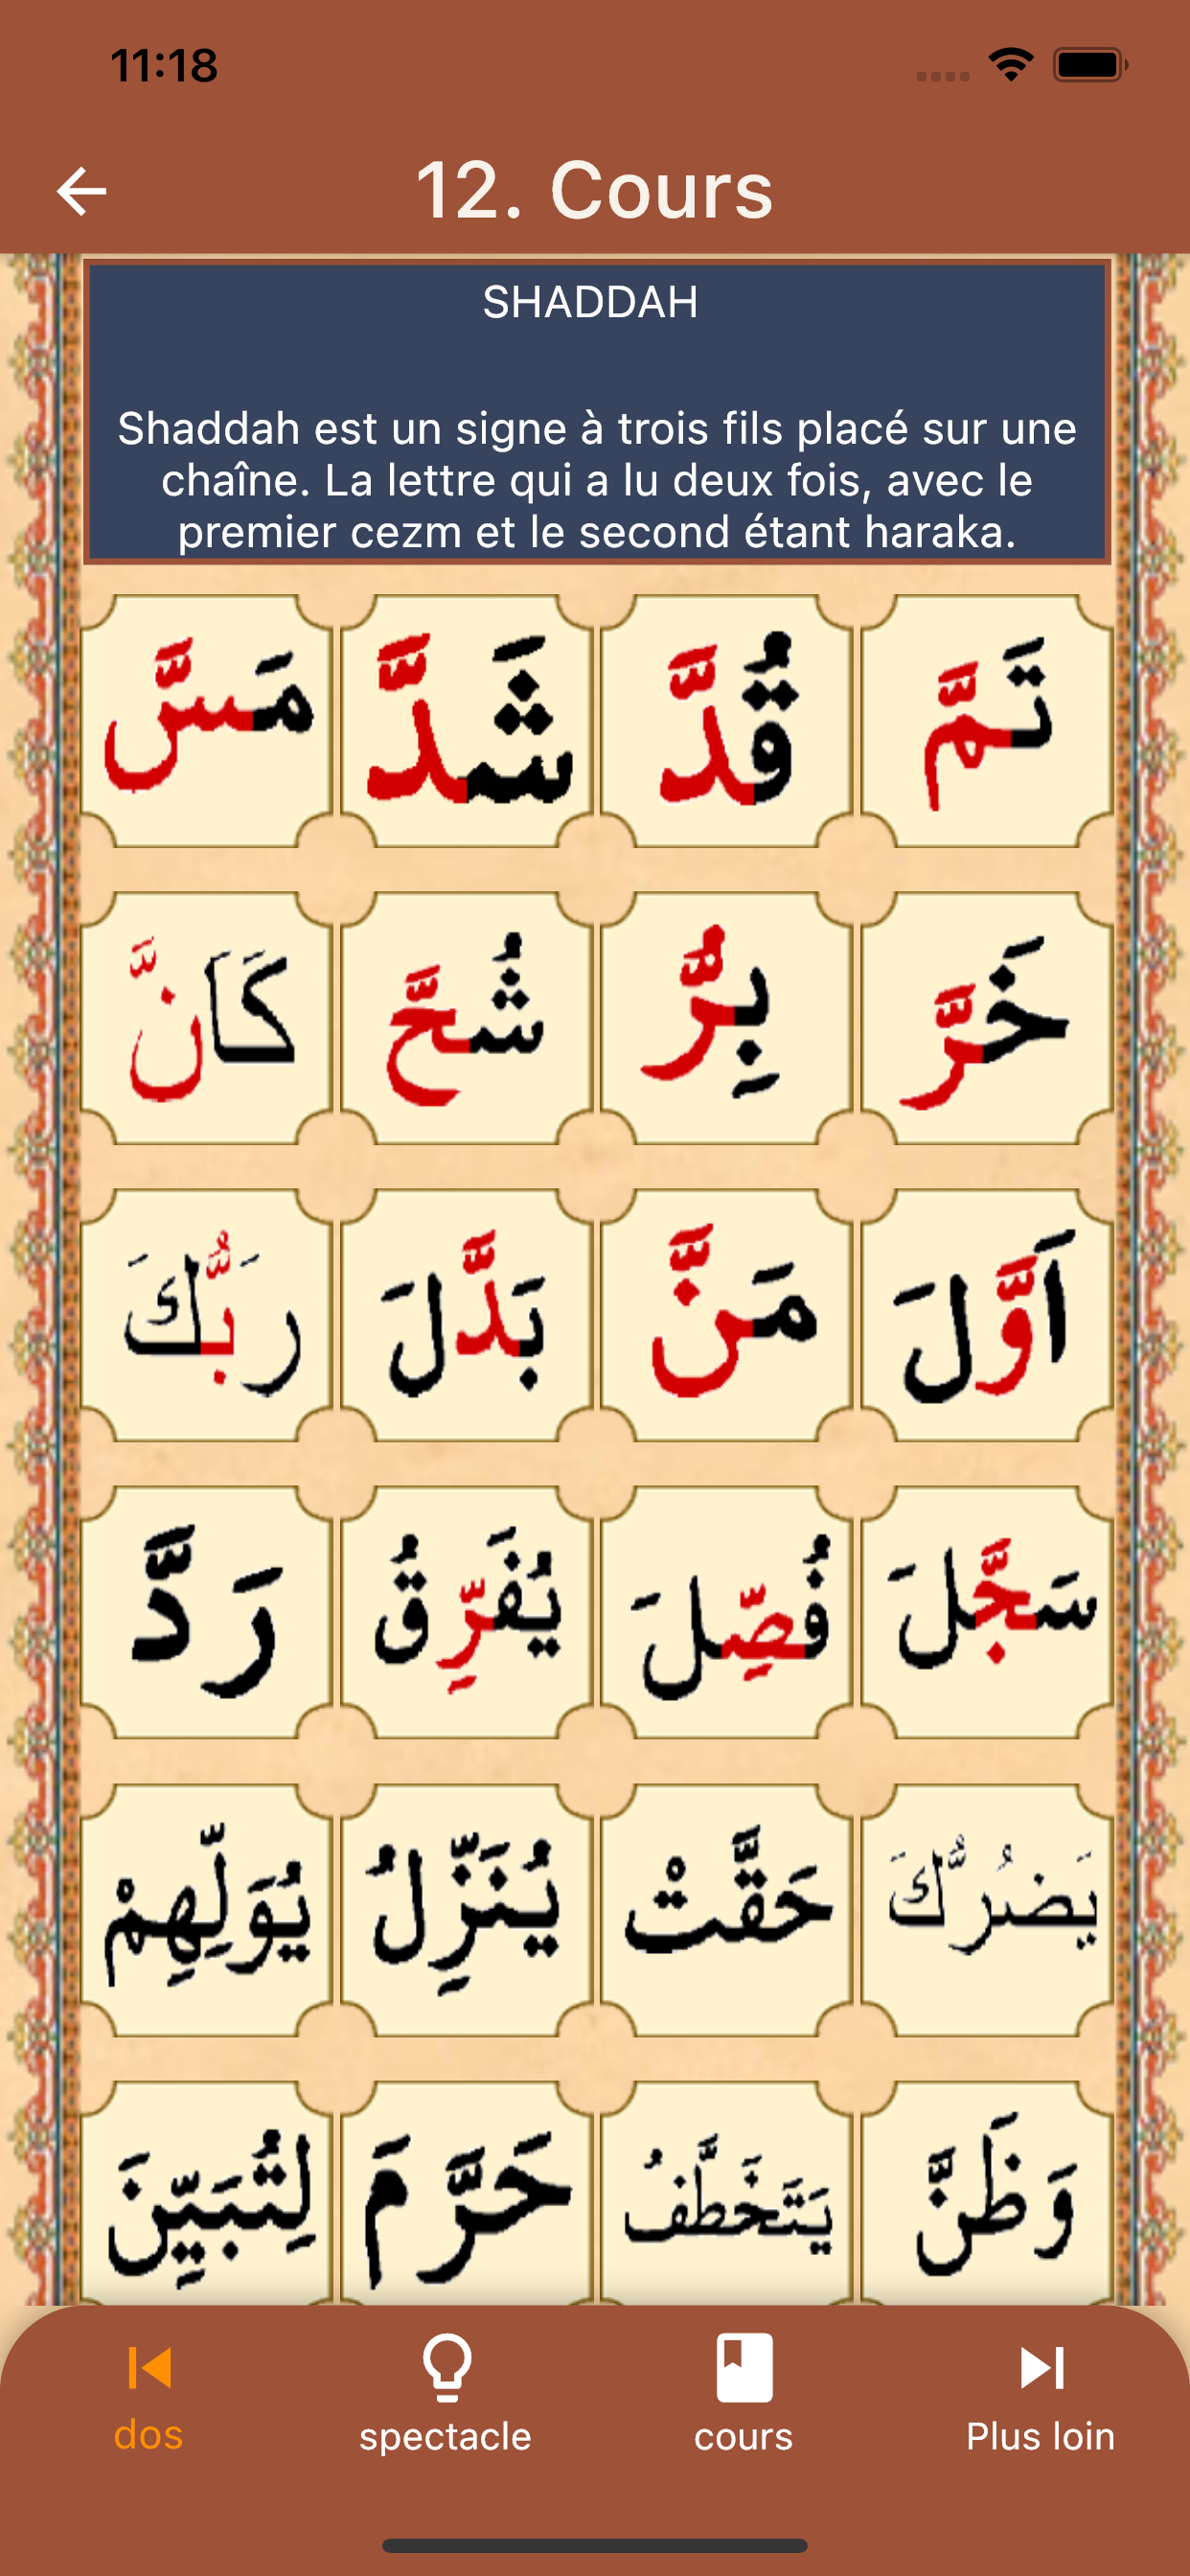 11:18
12. Cours
SHADDAH
Shaddah est un signe à trois fils placé sur une
chaîne. La lettre qui a lu deux fois, avec le
premier cezm et le second étant haraka.
تَمَّ قُدَّ شَدَّ مَسَّ
خَرَّ بِرُّ شُحَّ كَانَّ
اَوَّلَ مَنَّ بَدَّلَ رَبُّكَ
سَجَّلَ فُصِّلَ يُفَرِّقُ رَدَّ
يَضُرُّكَ حَقَّتْ يُنَزِّلُ يُوَلِّهِمْ
وَظَنَّ يَتَخَطَّفُ حَرَّمَ لِتُبَيِّنَ
dos spectacle cours Plus loin